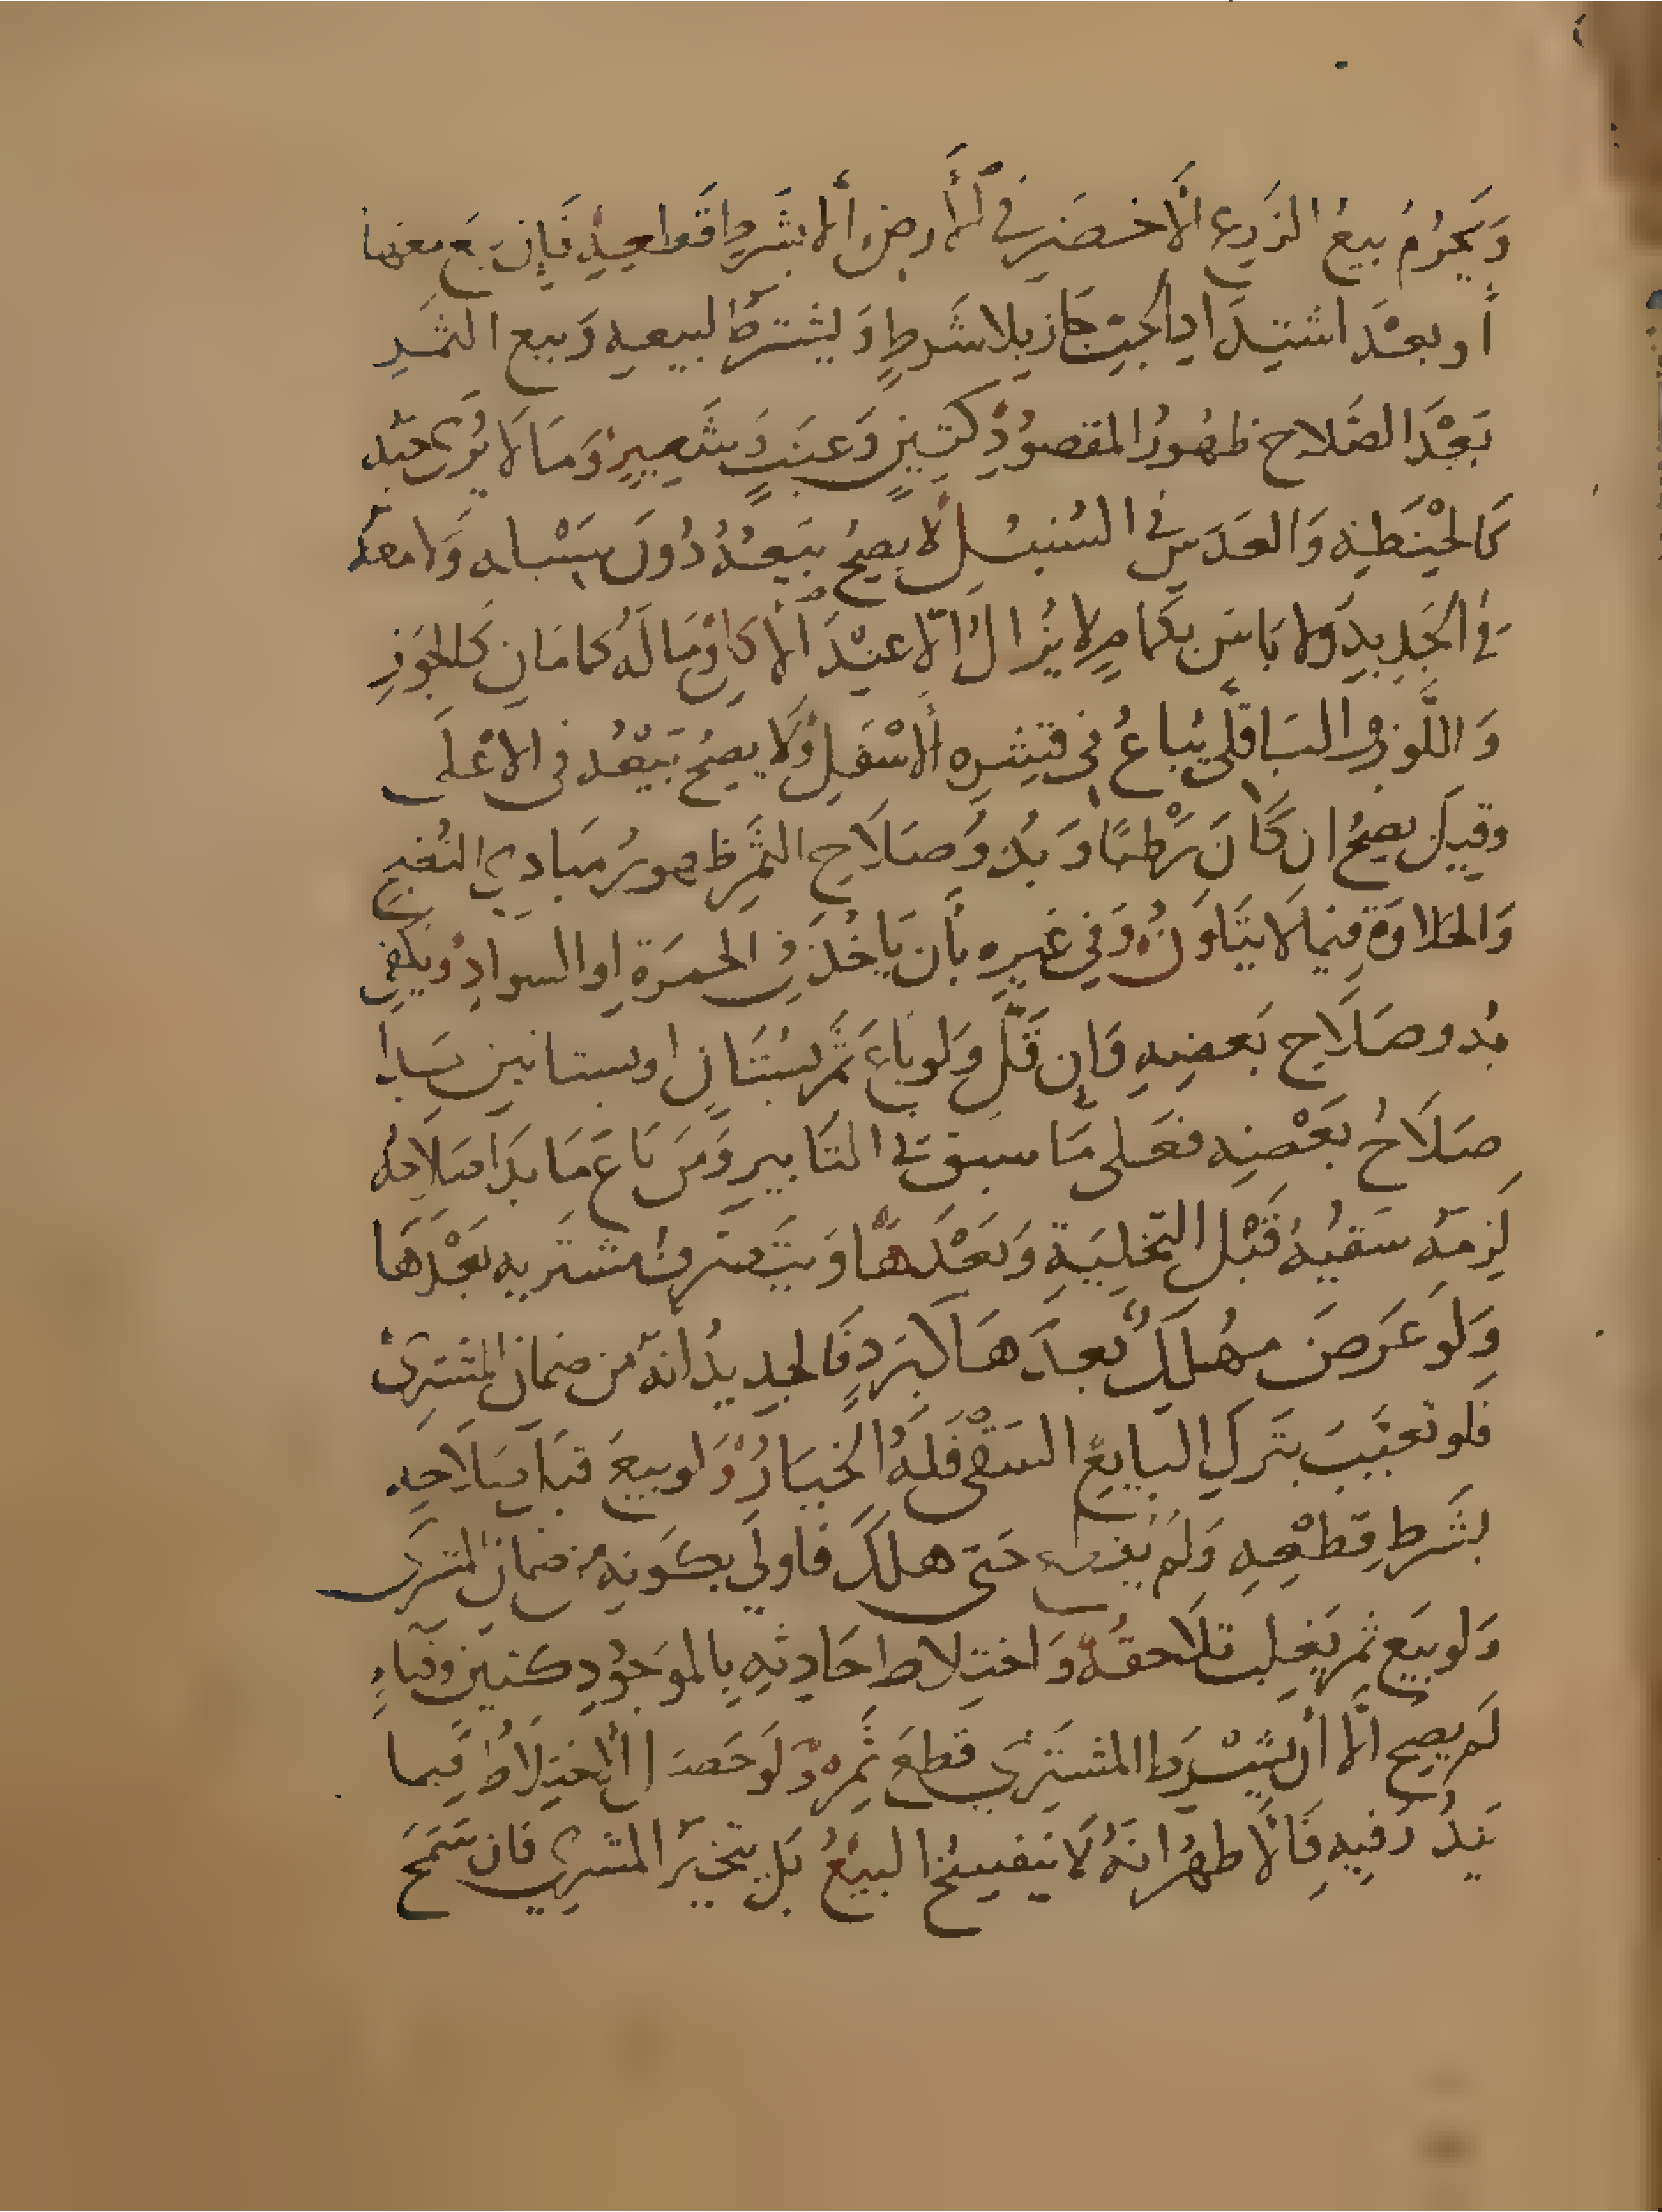 وَيَحرُمُ بيعُ الزَرعِ الَاخضَرِ في الأرضِ ألا بشَرطِ قَطعِهِ فَإن بِيعَ معهَا
أو بعْدَ اشتِدَادِ الحَبِّ جَازَ بلا شَرطٍ وَيشترَطُ لبيعهِ وَبيع الثمَرِ
بَعْدَ الصَلاحِ ظهُورُ المقصوُدِ كتِينٍ وَعنَبٍ وَشَعِيرٍ وَمَا لَا يُرَى حَبّه
كَالحْنَطةِ وَالعَدَسِ في السُنبُلِ لَا يصِحُّ بَيعُهُ دُونَ سنْبله وَلا معَهُ
في الجَدِيدِ وَلا بَاسَ بكمَامٍ لا يُزَالُ الّا عنْدَ الأكلِ وَمَا لَهُ كمامَانِ كَالجَوزِ
وَاللَّوزِ وَالبَاقلّى يُبَاعُ في قشِره الأسْفَلِ وَلَا يصِحُّ بَيْعُه في الاعْلَى
وقِيلَ يصحُّ ان كَانَ رَطْبًا وَبُدُوُّ صَلَاحِ الثَمَرِ ظهورُ مَبَادِي النُضجِ
وَالحَلاوَة فِيمَا لَا يتَلَوَّنُ وَفي غَيرِه بأَن يَاخُذَ في الحمرَةِ اوالسوادِ وَيكفِي
بُدو صَلَاحِ بَعضِهِ وَان قَلَّ وَلوبَاعَ ثمَرَ بُستَانٍ اوبستانين بَدا
صَلَاحُ بَعْضِهِ فعَلى مَا سبق في التَابيرِ وَمَن بَاعَ مَا بدَا صَلَاحُهُ
لَزِمَهُ سَقيُهُ قَبْلَ التخلِيَةِ وَبَعْدَهَا وَيَتَصرَفُ مُشتَريهِ بَعْدَهَا
وَلَو عَرَضَ مُهلكٌ بعدَهَا كبَرَدٍ فَالجدِيدُ انهُ من ضمانِ المشترِى
فَلو تعَيّبَ بتَركِ البَايِعِ السَقْى فَلَهُ الخيَارُ وَلو بِيعَ قبْلَ صَلَاحِهِ
بشَرطِ قطْعِهِ وَلَم يُقطع حَتى هلكَ فاولَى بكَونِهِ من ضمانِ المشترى
وَلو بِيعَ ثمَر يَغلِب تلَاحقهُ وَاختِلاط حَادِثهِ بِالموجُودِ كتينٍ وقثاءٍ
لَم يصِحّ الّا أن يشْترِطَ المشترِي قَطعَ ثَمَرِه وَلَو حَصَلَ الأختلَاطُ فيما
يَندُرُ فيهِ فَالأظهَرُ انَهُ لَا ينفسِخُ البيعُ بَل يتخيّرُ المشترِي فان سَمَحَ